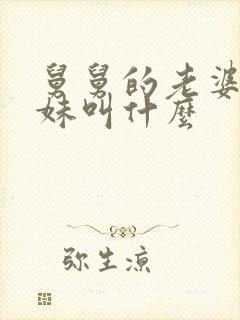 舅舅的老婆
妹叫什麽
弥生凉